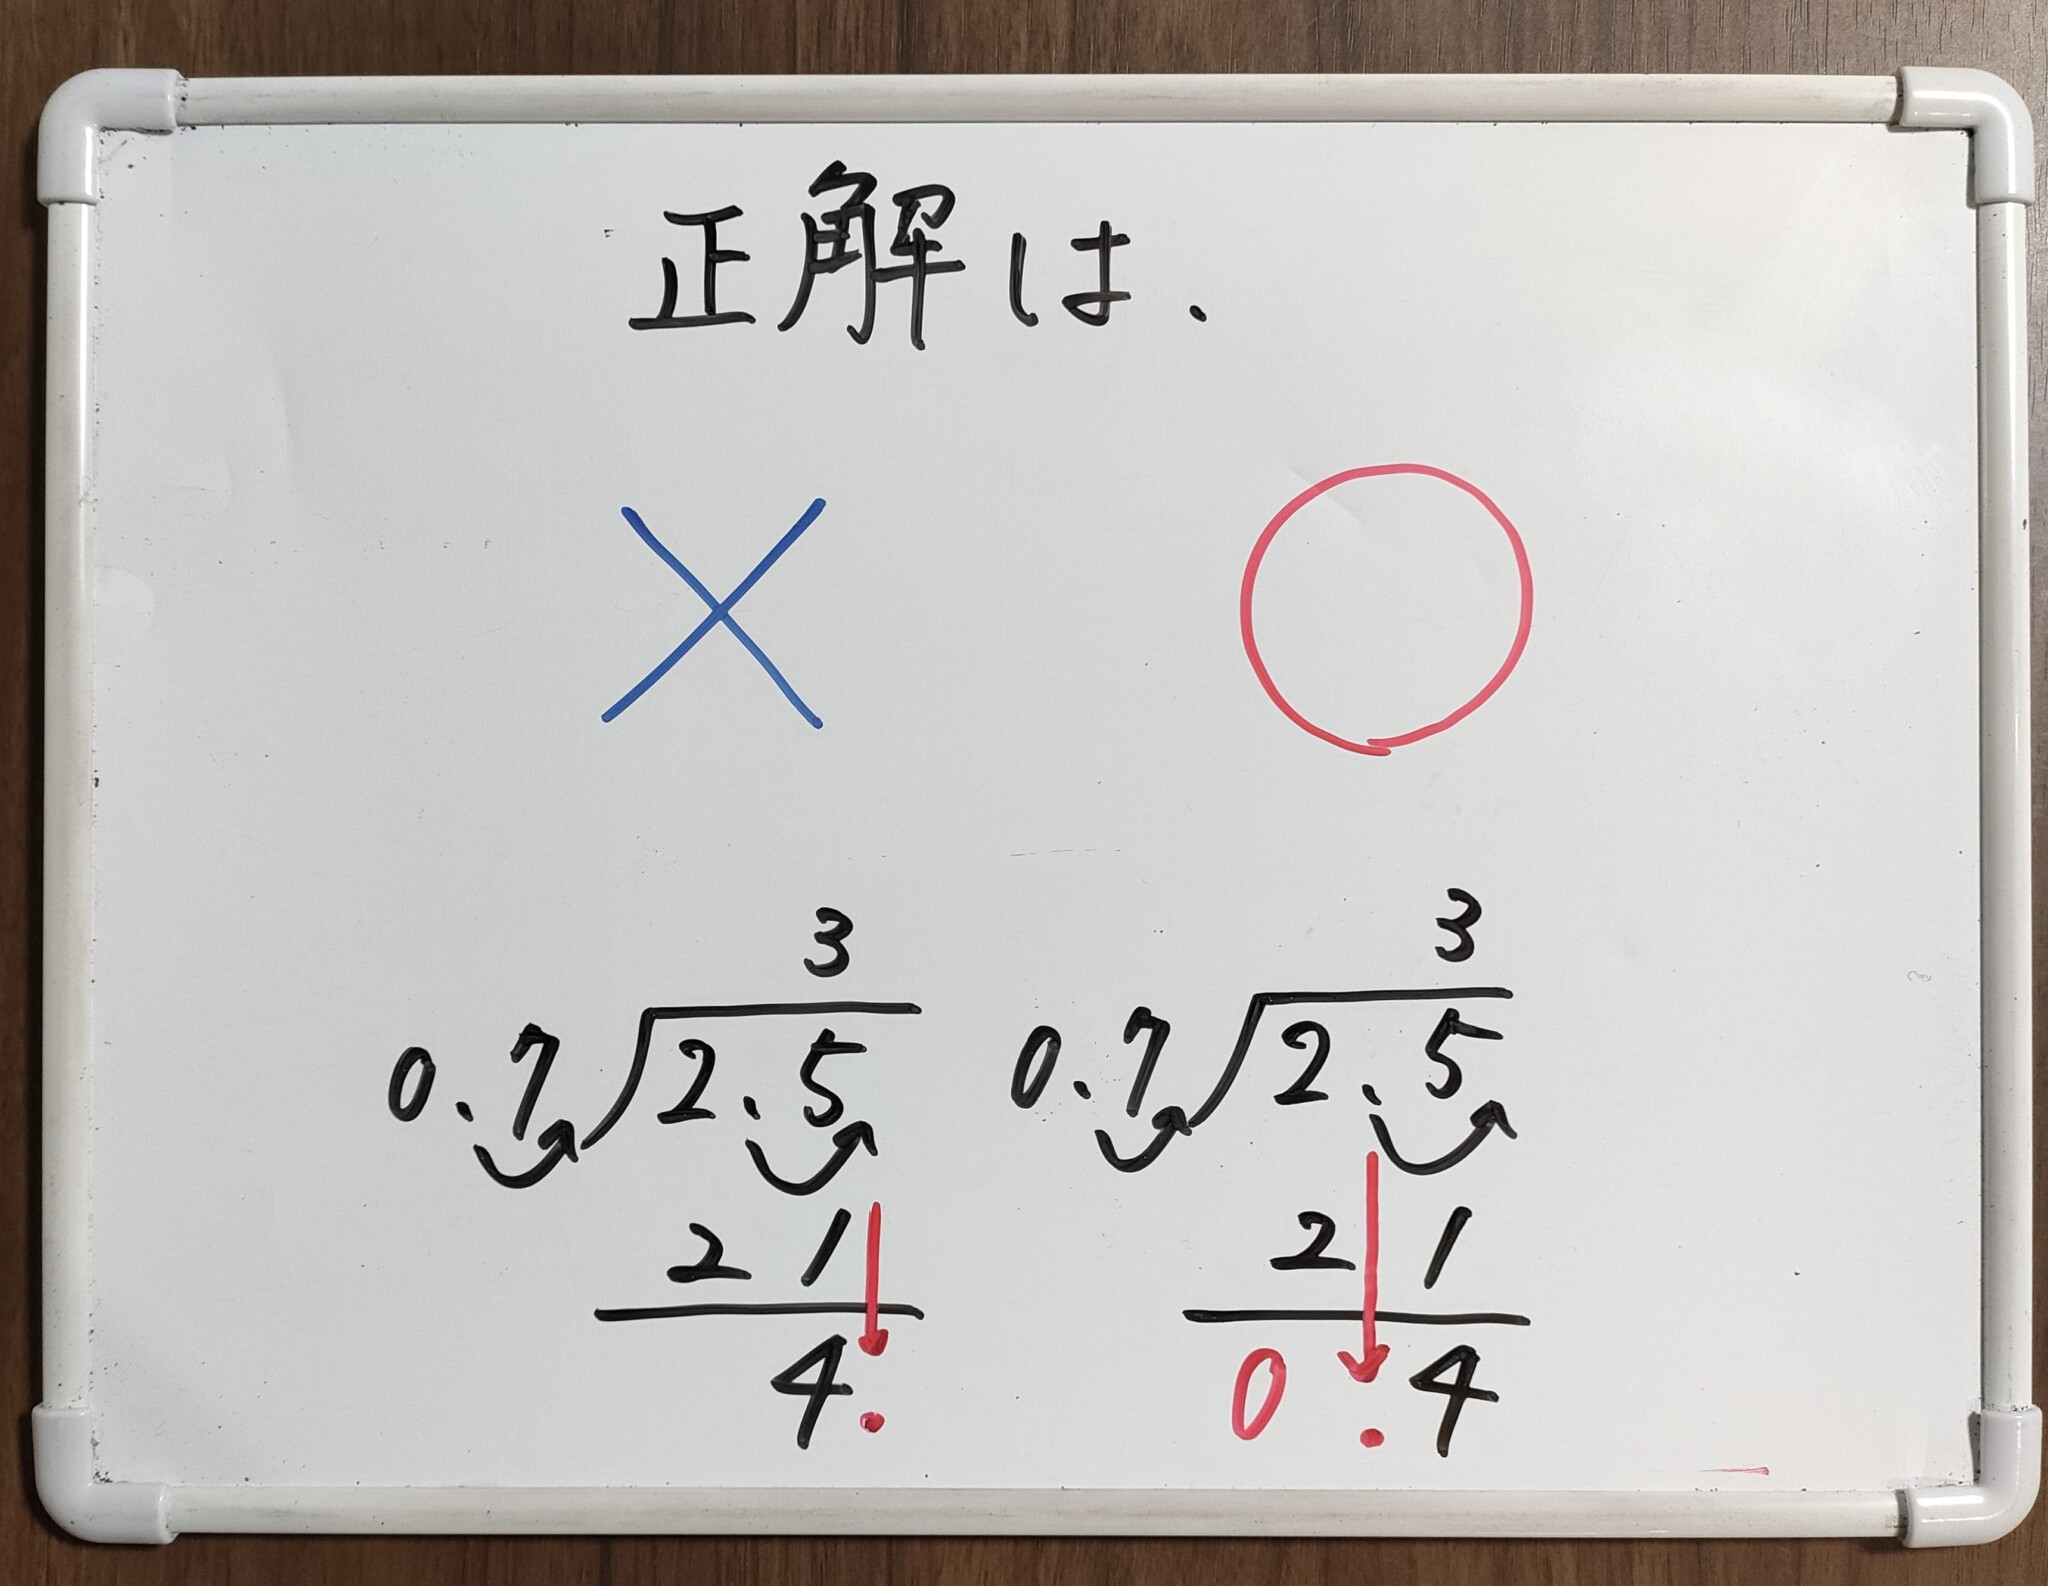 正解は.
3 3
0.7 2.5 0.7 2.5
21 21
4. 0.4